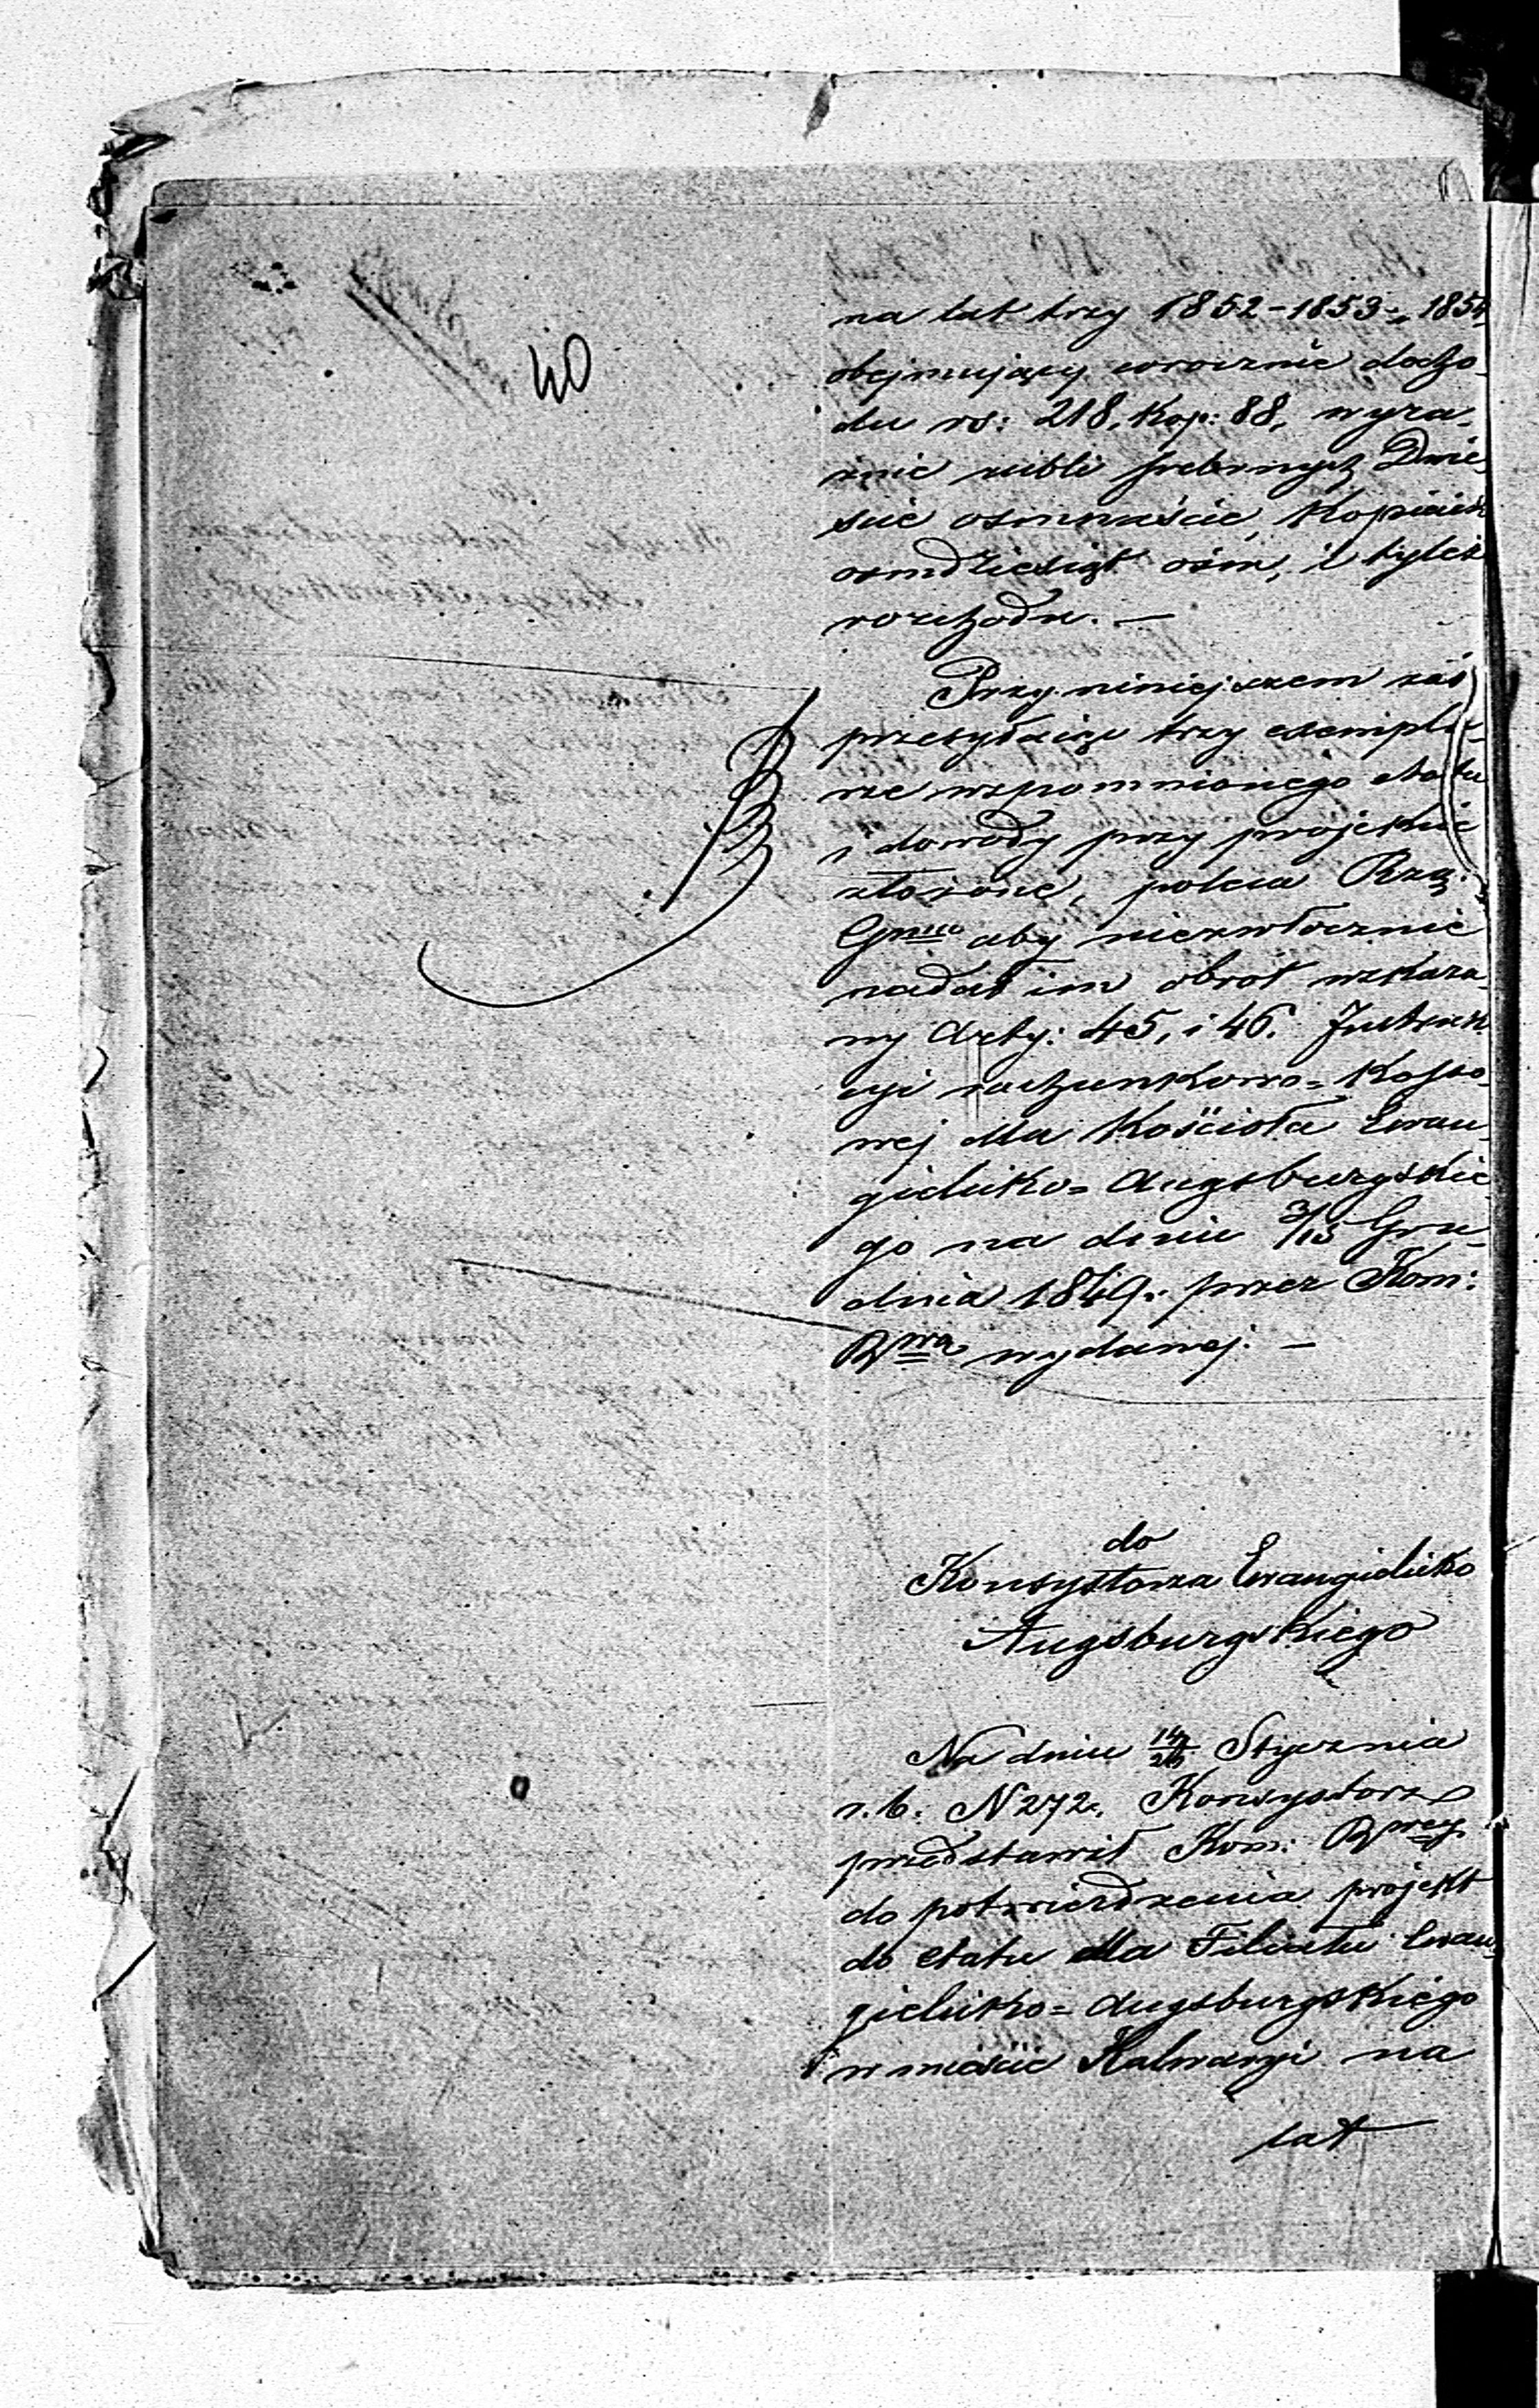 40
na lat trzy 1852-1853 1854
obejmujący corocznie docho-
du rs: 218, kop: 88, wyra-
źnie rubli srebrnych Dwie
ście osmnaście, Kopiiek
osmdziesiąt ośm, i tyleż
rozchodu. —
Przy niniejszem zaś
przesyłając trzy exempla-
rze wspomnionego etatu
i dowody przy projekcie
złożone, poleca Rzą:
Gmu aby niezwłocznie
nadał im obrot wskaza-
ny Arty: 45, i 46. Instruk
cyi rachunkowo= Kasso-
wej dla Kościoła Ewan-
gielicko= Augsburgskie-
go na dniu 3/15 Gru-
dnia 1849. przez Kom:
Rwą wydanej. —
do
Konsystorza Ewangielicko
Augsburgskiego
Na dniu 14/26 Stycznia
r. b. N 272. Konsystorz
przedstawił Kom: Rwej
do potwierdzenia projekt
do etatu dla Filiału Ewan-
gielicko= Augsburgskiego
w mieście Kalwaryi na
lat